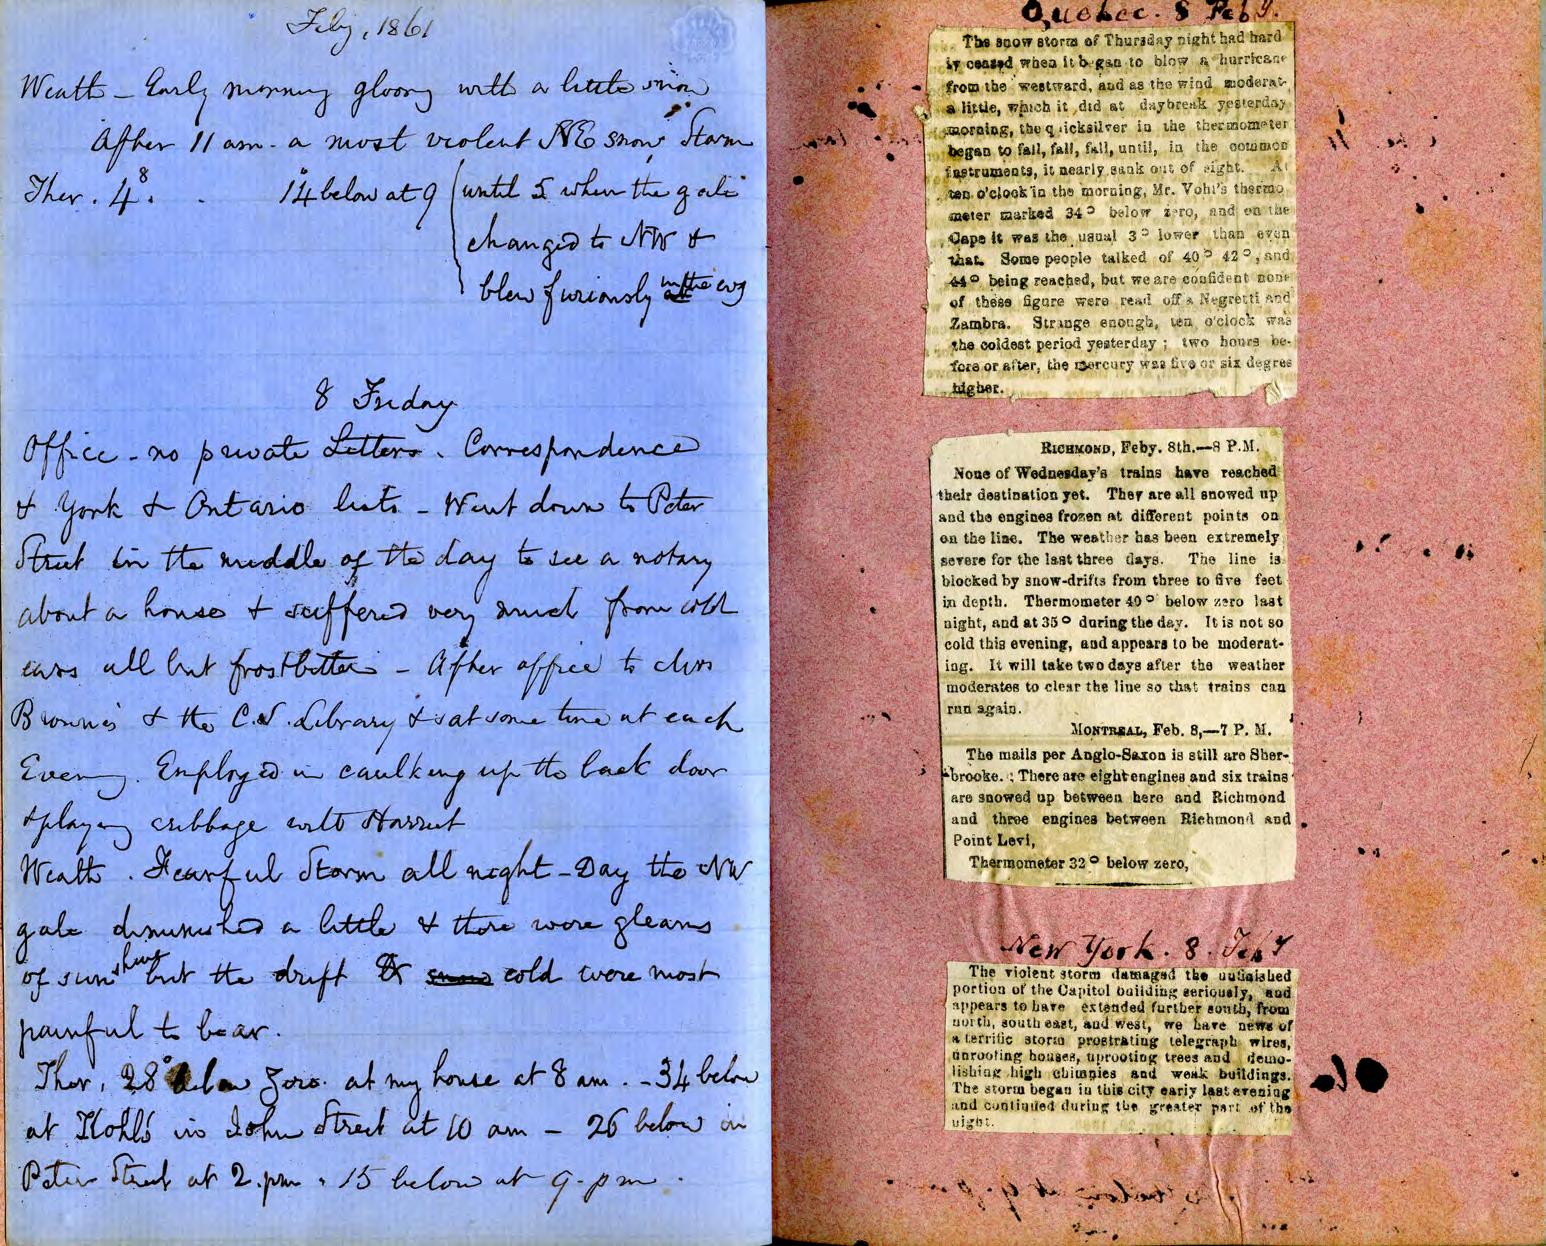 Feby, 1861
Weath - Early morning gloomy with a little snow
After 11 am - a most violent NE snow Storm
Ther. 4°8. . 14° below at 9 (until 5 when the gale
changed to NW &
blew furiously in the evg
8 Friday
Office - no private Letters. Correspondence
& York & Ontario lists - Went down to Peter
Street in the middle of the day to see a notary
about a house & suffered very much from cold
ears all but frostbitten - After office to
Browne's & the C.S. Library & sat some time at each
Eveng. Employed in caulking up the back door
& playing cribbage with Harriet
Weath. Fearful Storm all night - Day the NW
gale diminished a little & there were gleams
of sunshine but the drift & snow cold were most
painful to bear.
Ther, 28° below Zero. at my house at 8 am. - 34 below
at in John Street at 10 am - 26 below in
Peter Street at 2. pm. 15 below at 9. pm.
Quebec. 8 Feby.
The snow storm of Thursday night had hard
ly ceased when it began to blow a hurricane
from the westward, and as the wind moderat-
a little, which it did at daybreak yesterday
morning, the quicksilver in the thermometer
began to fall, fall, fall, until, in the common
instruments, it nearly sank out of sight. At
ten o'clock in the morning, Mr. Vohl's thermo
meter marked 34° below zero, and on the
Cape it was the usual 3° lower than even
that. Some people talked of 40° 42°, and
44° being reached, but we are confident none
of these figure were read off a Negretti and
Zambra. Strange enough, ten o'clock was
the coldest period yesterday ; two hours be-
fore or after, the mercury was five or six degres
higher.
RICHMOND, Feby. 8th.—8 P.M.
None of Wednesday's trains have reached
their destination yet. They are all snowed up
and the engines frozen at different points on
on the line. The weather has been extremely
severe for the last three days. The line is
blocked by snow-drifts from three to five feet
in depth. Thermometer 40° below zero last
night, and at 35° during the day. It is not so
cold this evening, and appears to be moderat-
ing. It will take two days after the weather
moderates to clear the line so that trains can
run again.
MONTREAL, Feb. 8,—7 P. M.
The mails per Anglo-Saxon is still are Sher-
brooke. ; There are eight engines and six trains
are snowed up between here and Richmond
and three engines between Richmond and
Point Levi,
Thermometer 32° below zero,
New York. 8. Feby
The violent storm damaged the unfinished
portion of the Capitol building seriously, and
appears to have extended further south, from
north, south east, and west, we have news of
a terrific storm prostrating telegraph wires,
unroofing houses, uprooting trees and demo-
lishing high chimnies and weak buildings.
The storm began in this city early last evening
and continued during the greater part of the
night.